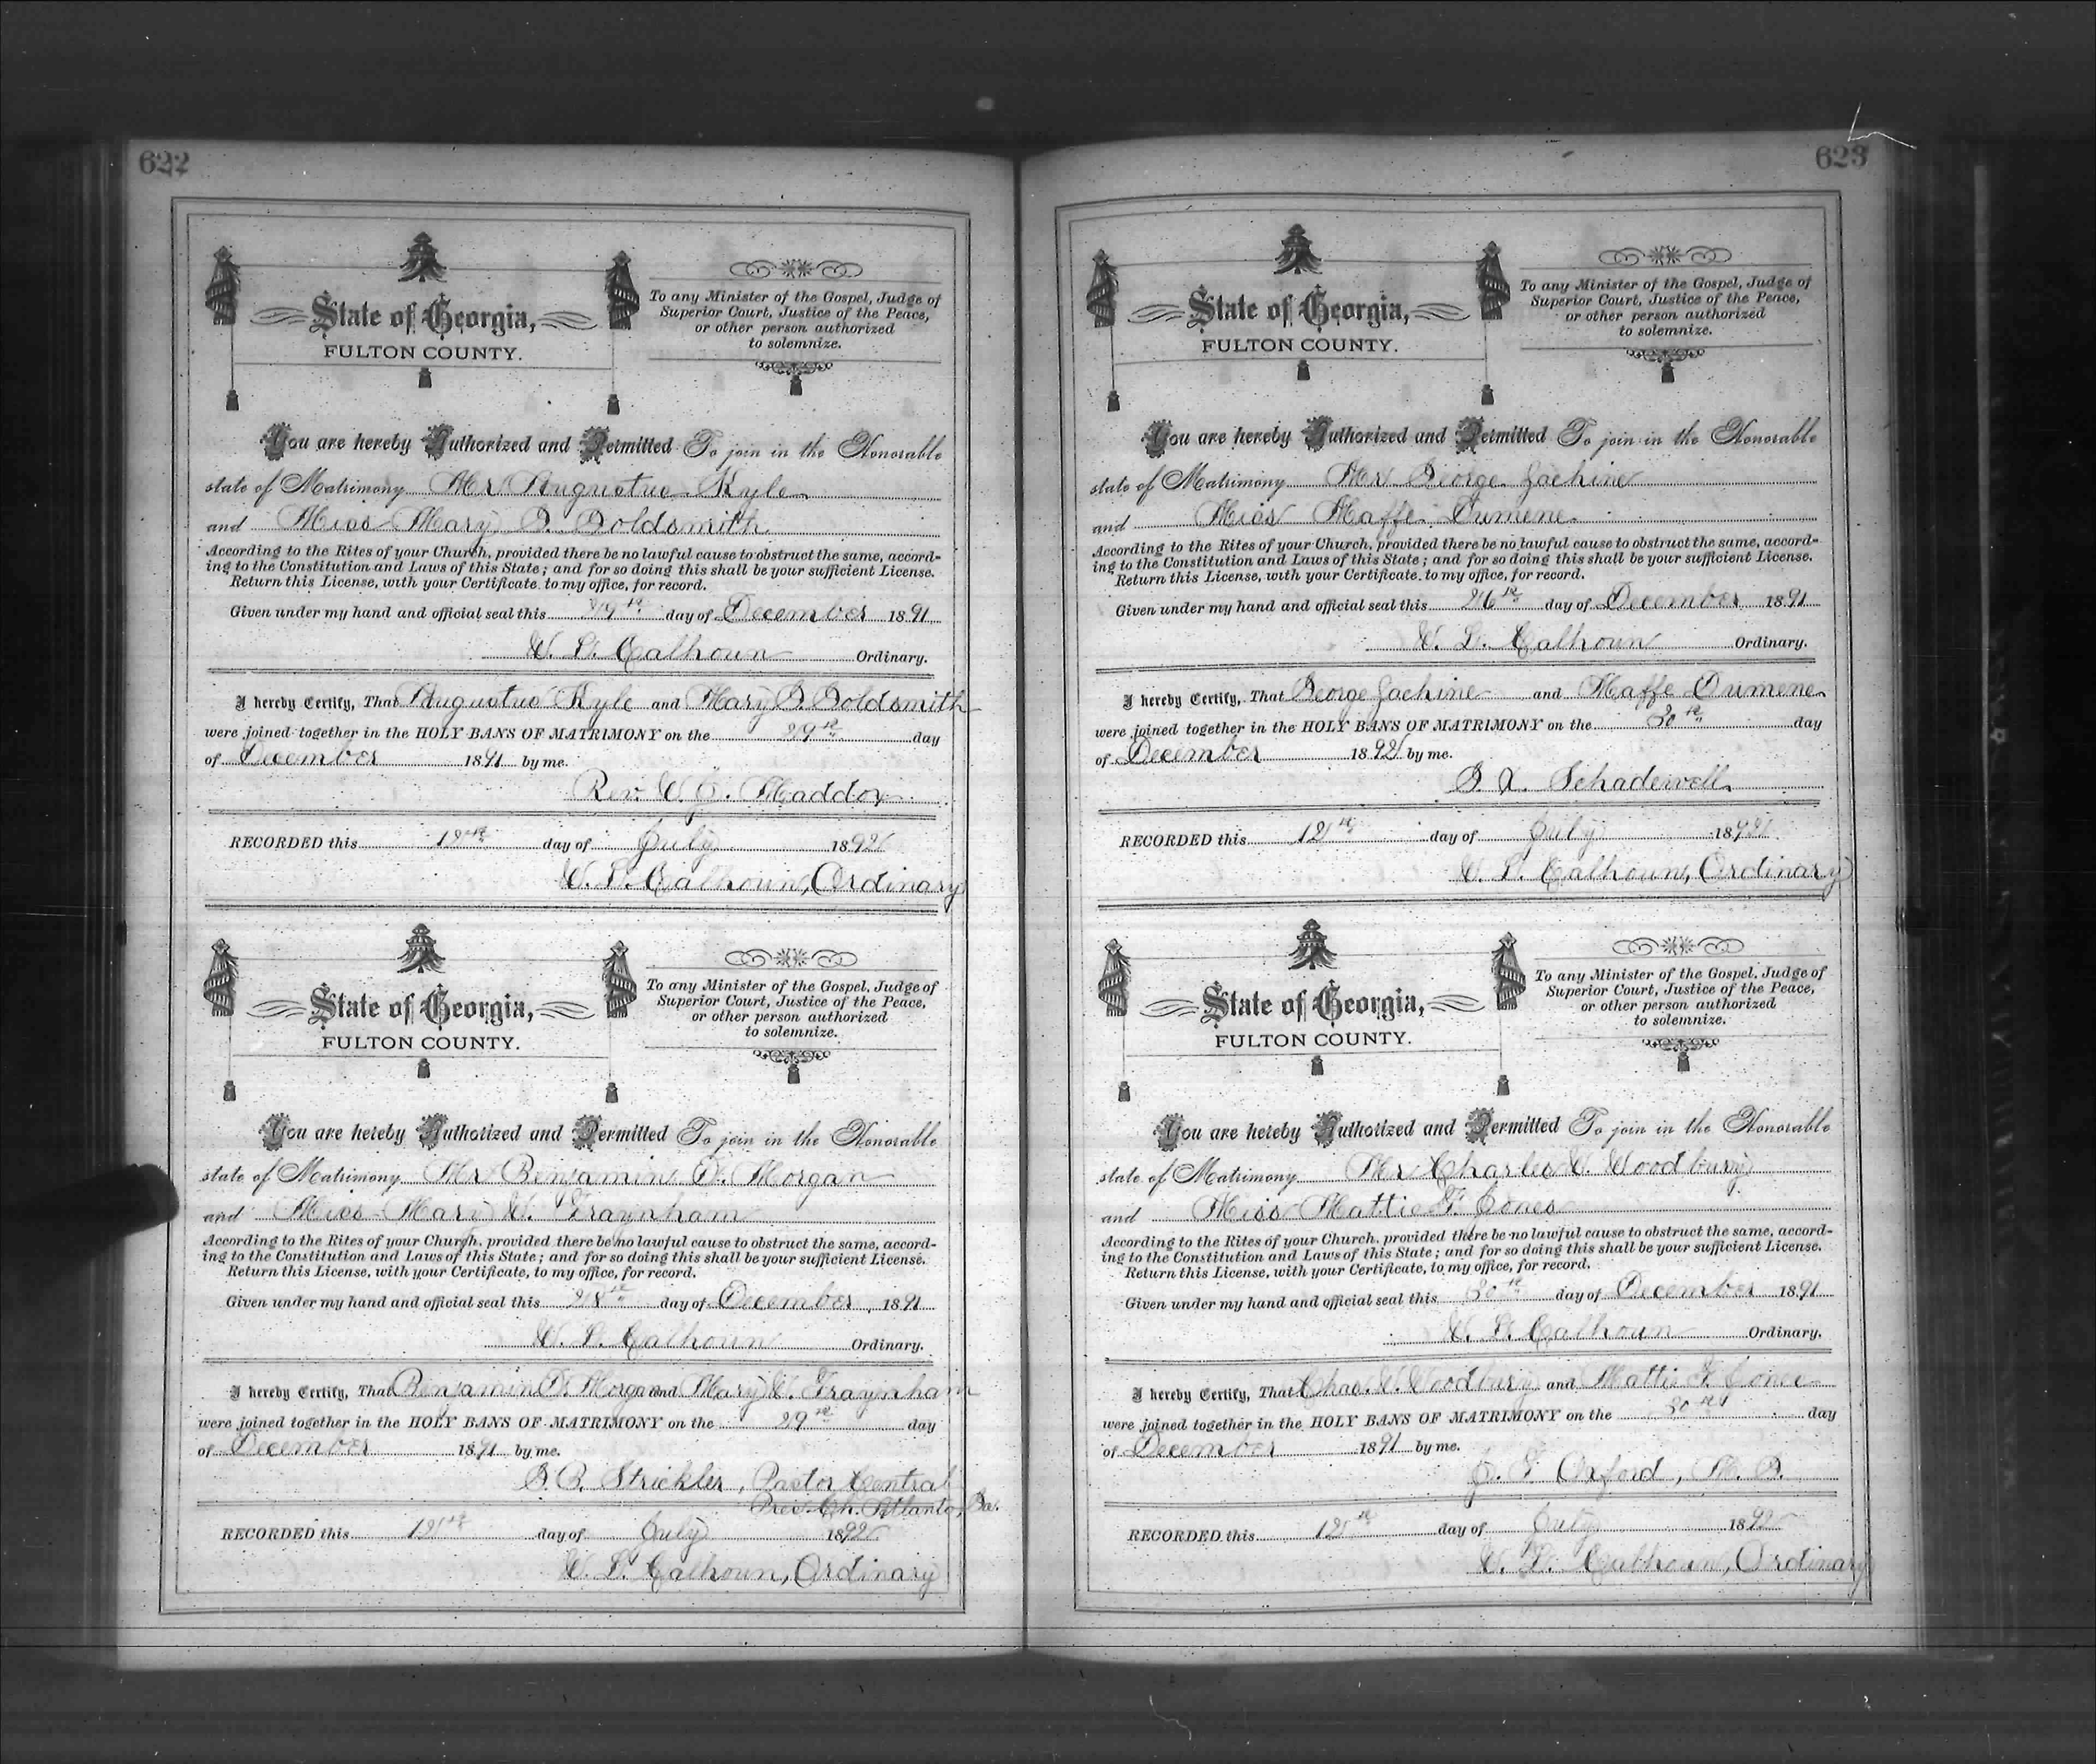 622
State of Georgia,
FULTON COUNTY.
To any Minister of the Gospel, Judge of
Superior Court, Justice of the Peace,
or other person authorized
to solemnize.
You are hereby Authorized and Permitted To join in the Honorable
state of Matrimony Mr Augustus Kyle
and Miss Mary G. Goldsmith
According to the Rites of your Church, provided there be no lawful cause to obstruct the same, accord-
ing to the Constitution and Laws of this State; and for so doing this shall be your sufficient License.
Return this License, with your Certificate to my office, for record.
Given under my hand and official seal this 29th day of December 1891
W. L. Calhoun Ordinary.
I hereby Certify, That Augustus Kyle and Mary G. Goldsmith
were joined together in the HOLY BANS OF MATRIMONY on the 29th day
of December 1891 by me.
Rev. W. J. Maddox
RECORDED this 12th day of July 1892
W. L. Calhoun, Ordinary
State of Georgia,
FULTON COUNTY.
To any Minister of the Gospel, Judge of
Superior Court, Justice of the Peace,
or other person authorized
to solemnize.
You are hereby Authorized and Permitted To join in the Honorable
state of Matrimony Mr Benjamin D. Morgan
and Miss Mary W. Traynham
According to the Rites of your Church, provided there be no lawful cause to obstruct the same, accord-
ing to the Constitution and Laws of this State; and for so doing this shall be your sufficient License.
Return this License, with your Certificate, to my office, for record.
Given under my hand and official seal this 28th day of December, 1891
W. L. Calhoun Ordinary.
I hereby Certify, That Benjamin D. Morgan and Mary W. Traynham
were joined together in the HOLY BANS OF MATRIMONY on the 29th day
of December 1891 by me.
G. B. Strickler, Pastor Central
Pres. Ch. Atlanta, Ga.
RECORDED this 12th day of July 1892
W. L. Calhoun, Ordinary
623
State of Georgia,
FULTON COUNTY.
To any Minister of the Gospel, Judge of
Superior Court, Justice of the Peace,
or other person authorized
to solemnize.
You are hereby Authorized and Permitted To join in the Honorable
state of Matrimony Mr George Jachine
and Miss Maffe Dumene
According to the Rites of your Church, provided there be no lawful cause to obstruct the same, accord-
ing to the Constitution and Laws of this State; and for so doing this shall be your sufficient License.
Return this License, with your Certificate to my office, for record.
Given under my hand and official seal this 26th day of December, 1891
W. L. Calhoun Ordinary.
I hereby Certify, That George Jachine and Maffe Dumene
were joined together in the HOLY BANS OF MATRIMONY on the 30th day
of December 1892 by me.
Schadewell
RECORDED this 12th day of July 1892
W. L. Calhoun, Ordinary
State of Georgia,
FULTON COUNTY.
To any Minister of the Gospel, Judge of
Superior Court, Justice of the Peace,
or other person authorized
to solemnize.
You are hereby Authorized and Permitted To join in the Honorable
state of Matrimony Mr Charles W. Woodbury
and Miss Mattie F. Jones
According to the Rites of your Church, provided there be no lawful cause to obstruct the same, accord-
ing to the Constitution and Laws of this State; and for so doing this shall be your sufficient License.
Return this License, with your Certificate, to my office, for record.
Given under my hand and official seal this 30th day of December 1891
W. L. Calhoun Ordinary.
I hereby Certify, That Chas. W. Woodbury and Mattie F. Jones
were joined together in the HOLY BANS OF MATRIMONY on the 30th day
of December 1891 by me.
J. F. Oxford, M. G.
RECORDED this 12th day of July 1892
W. L. Calhoun, Ordinary